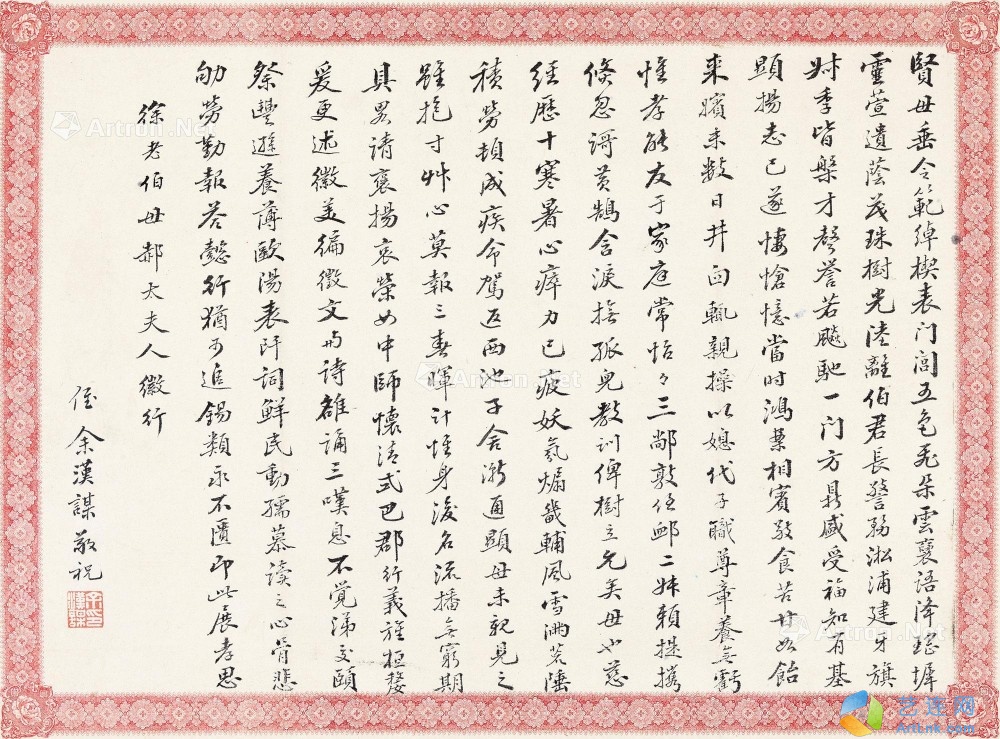 賢母垂令範綽楔表门閭五色飛朵雲褒語降瑤墀
靈萱遺蔭茂珠樹光陸離伯君長警務淞浦建牙旗
叔季皆槃才聲譽若飈馳一门方鼎盛受福知有基
顯揚志已遂悽愴憶當時鴻案相賓敬食苦甘如飴
来嬪未數日井臼輒親操以媳代子職尊章養無虧
惟孝能友于家庭常怡々三鄰敦任卹二妹賴提携
倏忽謌黄鵠含淚撫孤兒教訓俾樹立允矣母也慈
經歷十寒暑心瘁力已疲妖氛煽畿輔風雪渺茗陲
積勞頓成疾命駕返西池子舍漸通顯母未親見之
雖抱寸艸心莫報三春暉計惟身後名流播無窮期
具畧請褒揚哀榮如中師懷清式巴郡行義旌桓嫠
爰更述徽美徧徵文与詩雒誦三嘆息不覺涕交頤
祭豐遜養薄歐陽表阡詞鮮民動孺慕讀之心骨悲
劬勞勤報荅懿行猶可追錫類永不匱即此展孝思
徐老伯母郝太夫人徽行
侄余漢謀敬祝
余漢謀印
Artron.Net
艺连网
ArtLnk.com